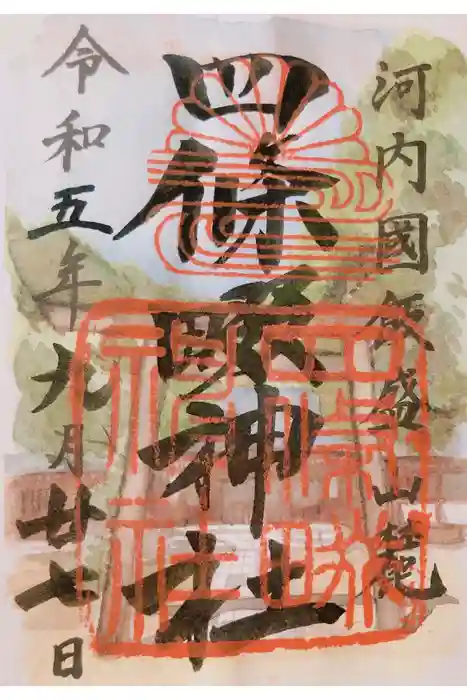 河内國飯盛山麓
四條畷神社
令和五年九月廿七日